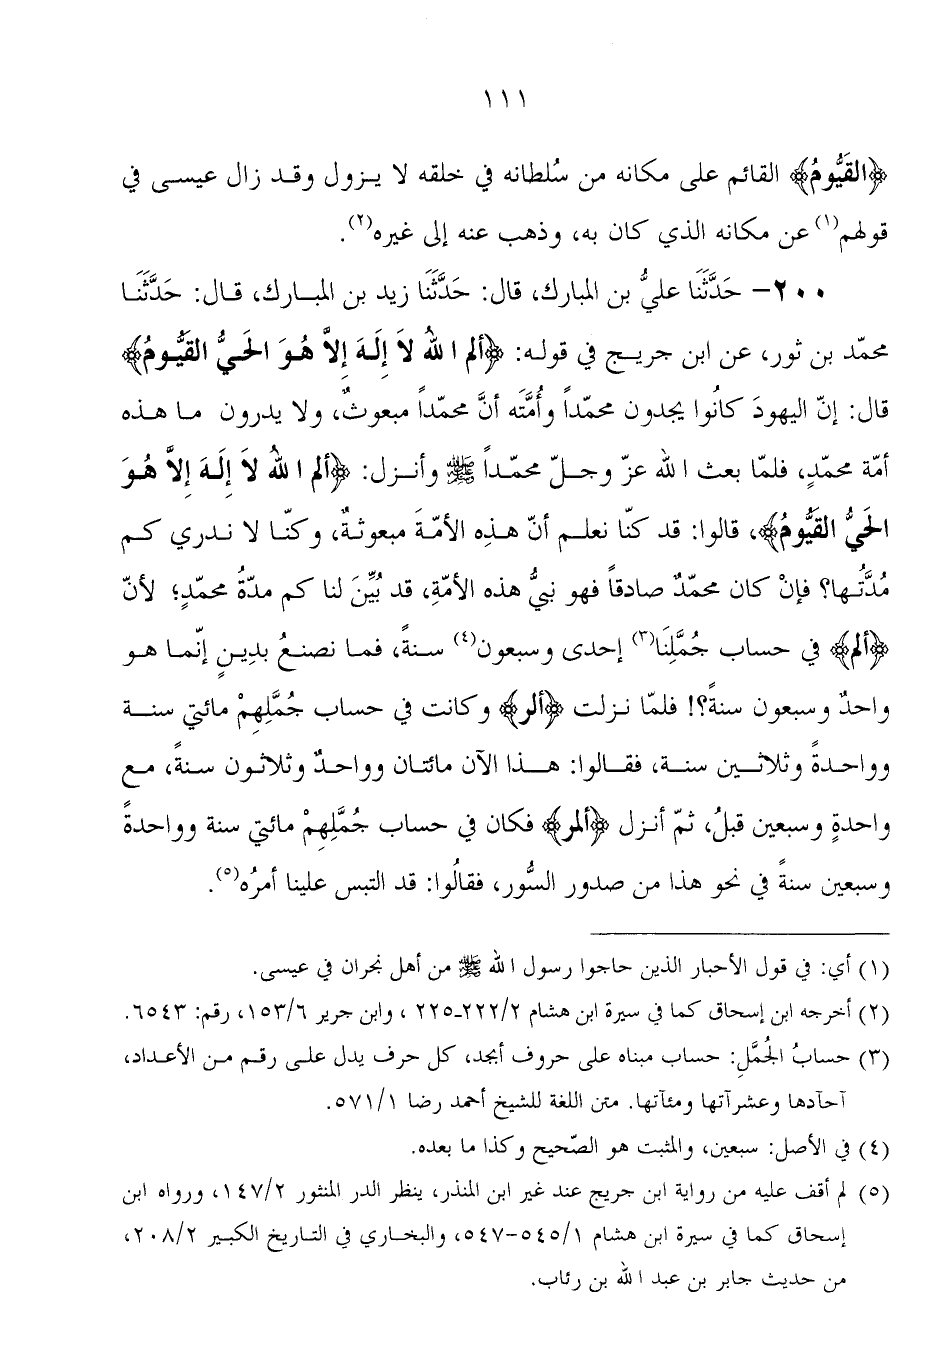 ١١١
﴿القَيُّومُ﴾ القائم على مكانه من سُلطانه في خلقه لا يـزول وقـد زال عيسـى في
قولهم(١) عن مكانه الذي كان به، وذهب عنه إلى غيره(٢).
٢٠٠- حَدَّثَنَا عليُّ بن المبارك، قال: حَدَّثَنَا زيد بن المبـارك، قـال: حَدَّثَنَـا
محمّد بن ثور، عن ابن جريـج في قولـه: ﴿ألم الله لاَ إِلَـهَ إِلاَّ هُـوَ الحَـيُّ القَيُّـومُ﴾
قال: إنّ اليهودَ كانُوا يجدون محمّداً وأُمَّتَه أنَّ محمّداً مبعوثٌ، ولا يدرون ما هـذه
أمّة محمّدٍ، فلمّا بعث الله عزّ وجـلّ محمّـداً ﷺ وأنـزل: ﴿ألم الله لاَ إِلَـهَ إِلاَّ هُـوَ
الحَيُّ القَيُّومُ﴾، قالوا: قد كنّا نعلـم أنّ هـذِه الأمّـةَ مبعوثـةٌ، وكنّـا لا نـدري كـم
مُدَّتُـها؟ فإنْ كان محمّدٌ صادقاً فهو نبيُّ هذه الأمّةِ، قد بُيِّنَ لنا كم مدّةُ محمّدٍ؛ لأنّ
﴿ألم﴾ في حساب جُمَّلِنَا(٣) إحدى وسبعون(٤) سنةً، فمـا نصنـعُ بدِيـنٍ إنّمـا هـو
واحدٌ وسبعون سنةً؟! فلمّا نـزلت ﴿ألر﴾ وكانت في حساب جُمَّلِهِمْ مائتي سنـة
وواحـدةً وثلاثـين سنـة، فقـالوا: هـذا الآن مائتـان وواحـدٌ وثلاثـون سنـةً، مـع
واحدةٍ وسبعين قبلُ، ثمّ أنـزل ﴿ألمر﴾ فكان في حساب جُمَّلِهِمْ مائتي سنة وواحدةً
وسبعين سنةً في نحو هذا من صدور السُّور، فقالُوا: قد التبس علينا أمرُه(٥).
(١) أي: في قول الأحبار الذين حاجوا رسول الله ﷺ من أهل نجران في عيسى.
(٢) أخرجه ابن إسحاق كما في سيرة ابن هشام ٢/ ٢٢٢-٢٢٥، وابن جرير ٦/ ١٥٣، رقم: ٦٥٤٣.
(٣) حسابُ الجُمَّلِ: حساب مبناه على حروف أبجد، كل حرف يدل علـى رقـم مـن الأعـداد،
آحآدها وعشرآتها ومئآتها. متن اللغة للشيخ أحمد رضا ١/ ٥٧١.
(٤) في الأصل: سبعين، والمثبت هو الصّحيح وكذا ما بعده.
(٥) لم أقف عليه من رواية ابن جريج عند غير ابن المنذر، ينظر الدر المنثور ٢/ ١٤٧، ورواه ابن
إسحاق كما في سيرة ابن هشام ١/ ٥٤٥-٥٤٧، والبخـاري في التـاريخ الكبيـر ٢/ ٢٠٨،
من حديث جابر بن عبد الله بن رئاب.